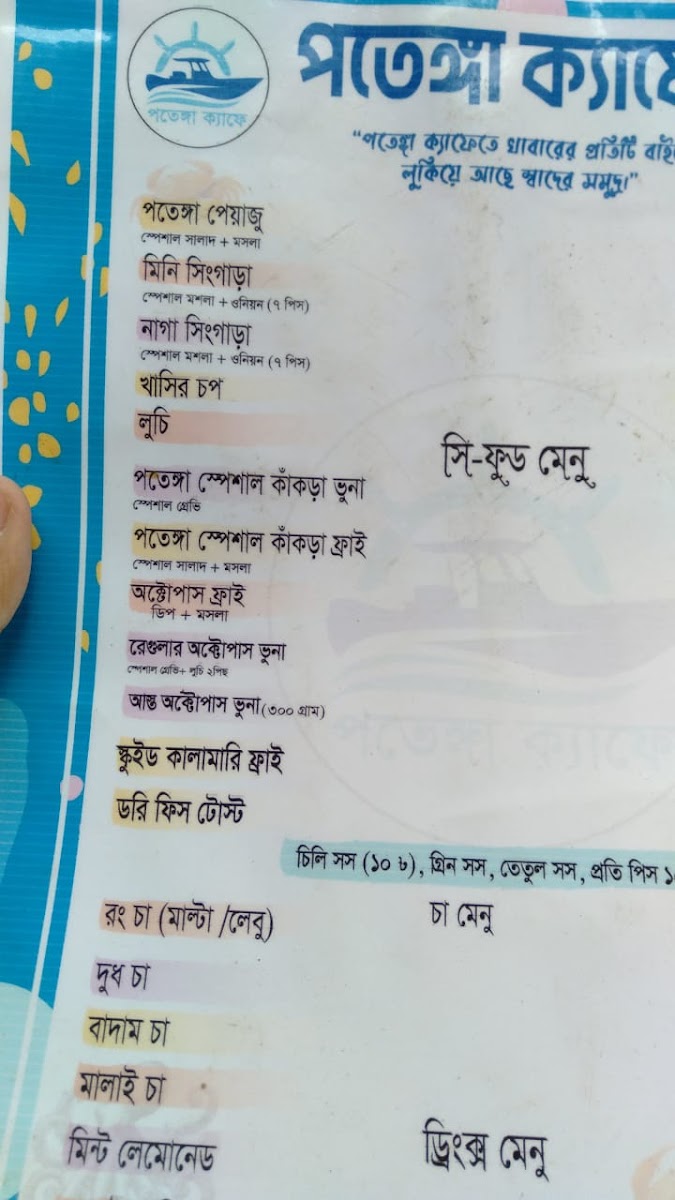 পতেঙ্গা ক্যাফে
পতেঙ্গা ক্যাফে
"পতেঙ্গা ক্যাফেতে খাবারের প্রতিটি
লুকিয়ে আছে স্বাদের সমুদ্র।"
পতেঙ্গা পেয়াজু
স্পেশাল সালাদ + মসলা
মিনি সিংগাড়া
স্পেশাল মশলা + ওনিয়ন (৭ পিস)
নাগা সিংগাড়া
স্পেশাল মশলা + ওনিয়ন (৭ পিস)
খাসির চপ
লুচি
সি-ফুড মেনু
পতেঙ্গা স্পেশাল কাঁকড়া ভুনা
স্পেশাল গ্রেভি
পতেঙ্গা স্পেশাল কাঁকড়া ফ্রাই
স্পেশাল সালাদ + মসলা
অক্টোপাস ফ্রাই
ডিপ + মসলা
রেগুলার অক্টোপাস ভুনা
স্পেশাল গ্রেভি+ লুচি ২পিছ
আস্ত অক্টোপাস ভুনা (৩০০ গ্রাম)
স্কুইড কালামারি ফ্রাই
ডরি ফিস টোস্ট
চিলি সস (১০ ৳), গ্রিন সস, তেতুল সস, প্রতি পিস
রং চা (মাল্টা /লেবু) চা মেনু
দুধ চা
বাদাম চা
মালাই চা
মিন্ট লেমোনেড ড্রিংক্স মেনু